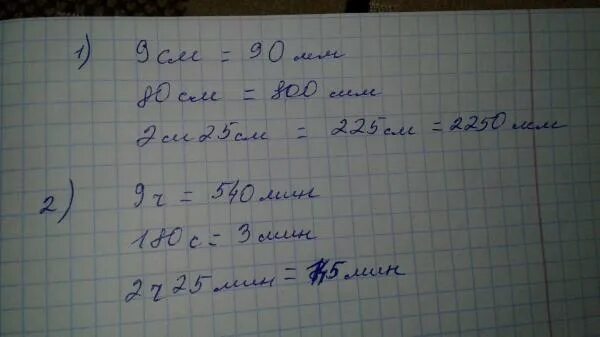 1) 9 см = 90 мм
80 см = 800 мм
2 см 25 см = 225 см = 2250 мм
2) 9 ч = 540 мин
180 с = 3 мин
2 ч 25 мин = 5 мин